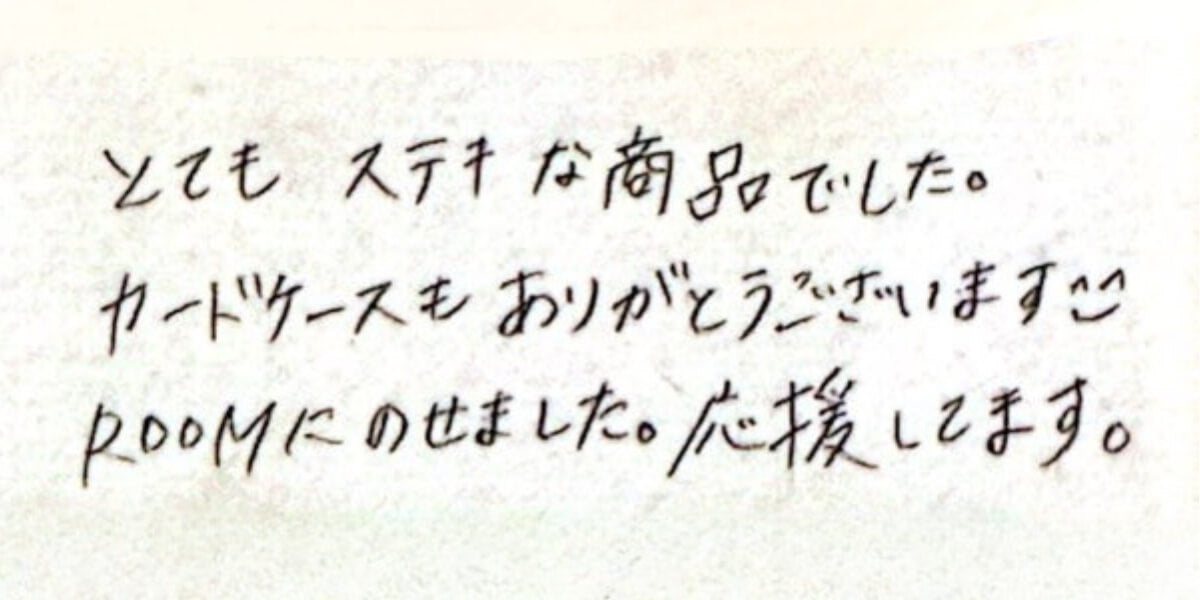 とても ステキな商品でした。
カードケースもありがとうございます^^
ROOMにのせました。応援してます。